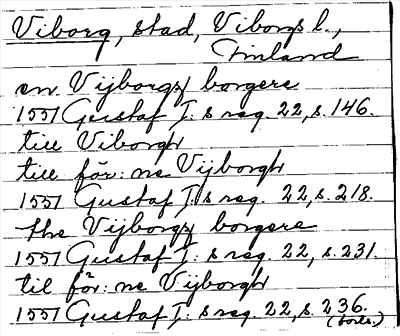 Viborg, stad, Viborgs l.,
Finland
en Vijborgs borgere
1551 Gustaf I: s reg. 22, s. 146.
till Viborgh
till för: ne Vijborgh
1551 Gustaf I: s reg. 22, s. 218.
the Vijborgs borgere
1551 Gustaf I: s reg. 22, s. 231.
til för: ne Vijborgh
1551 Gustaf I: s reg. 22, s. 236.
(forts.)